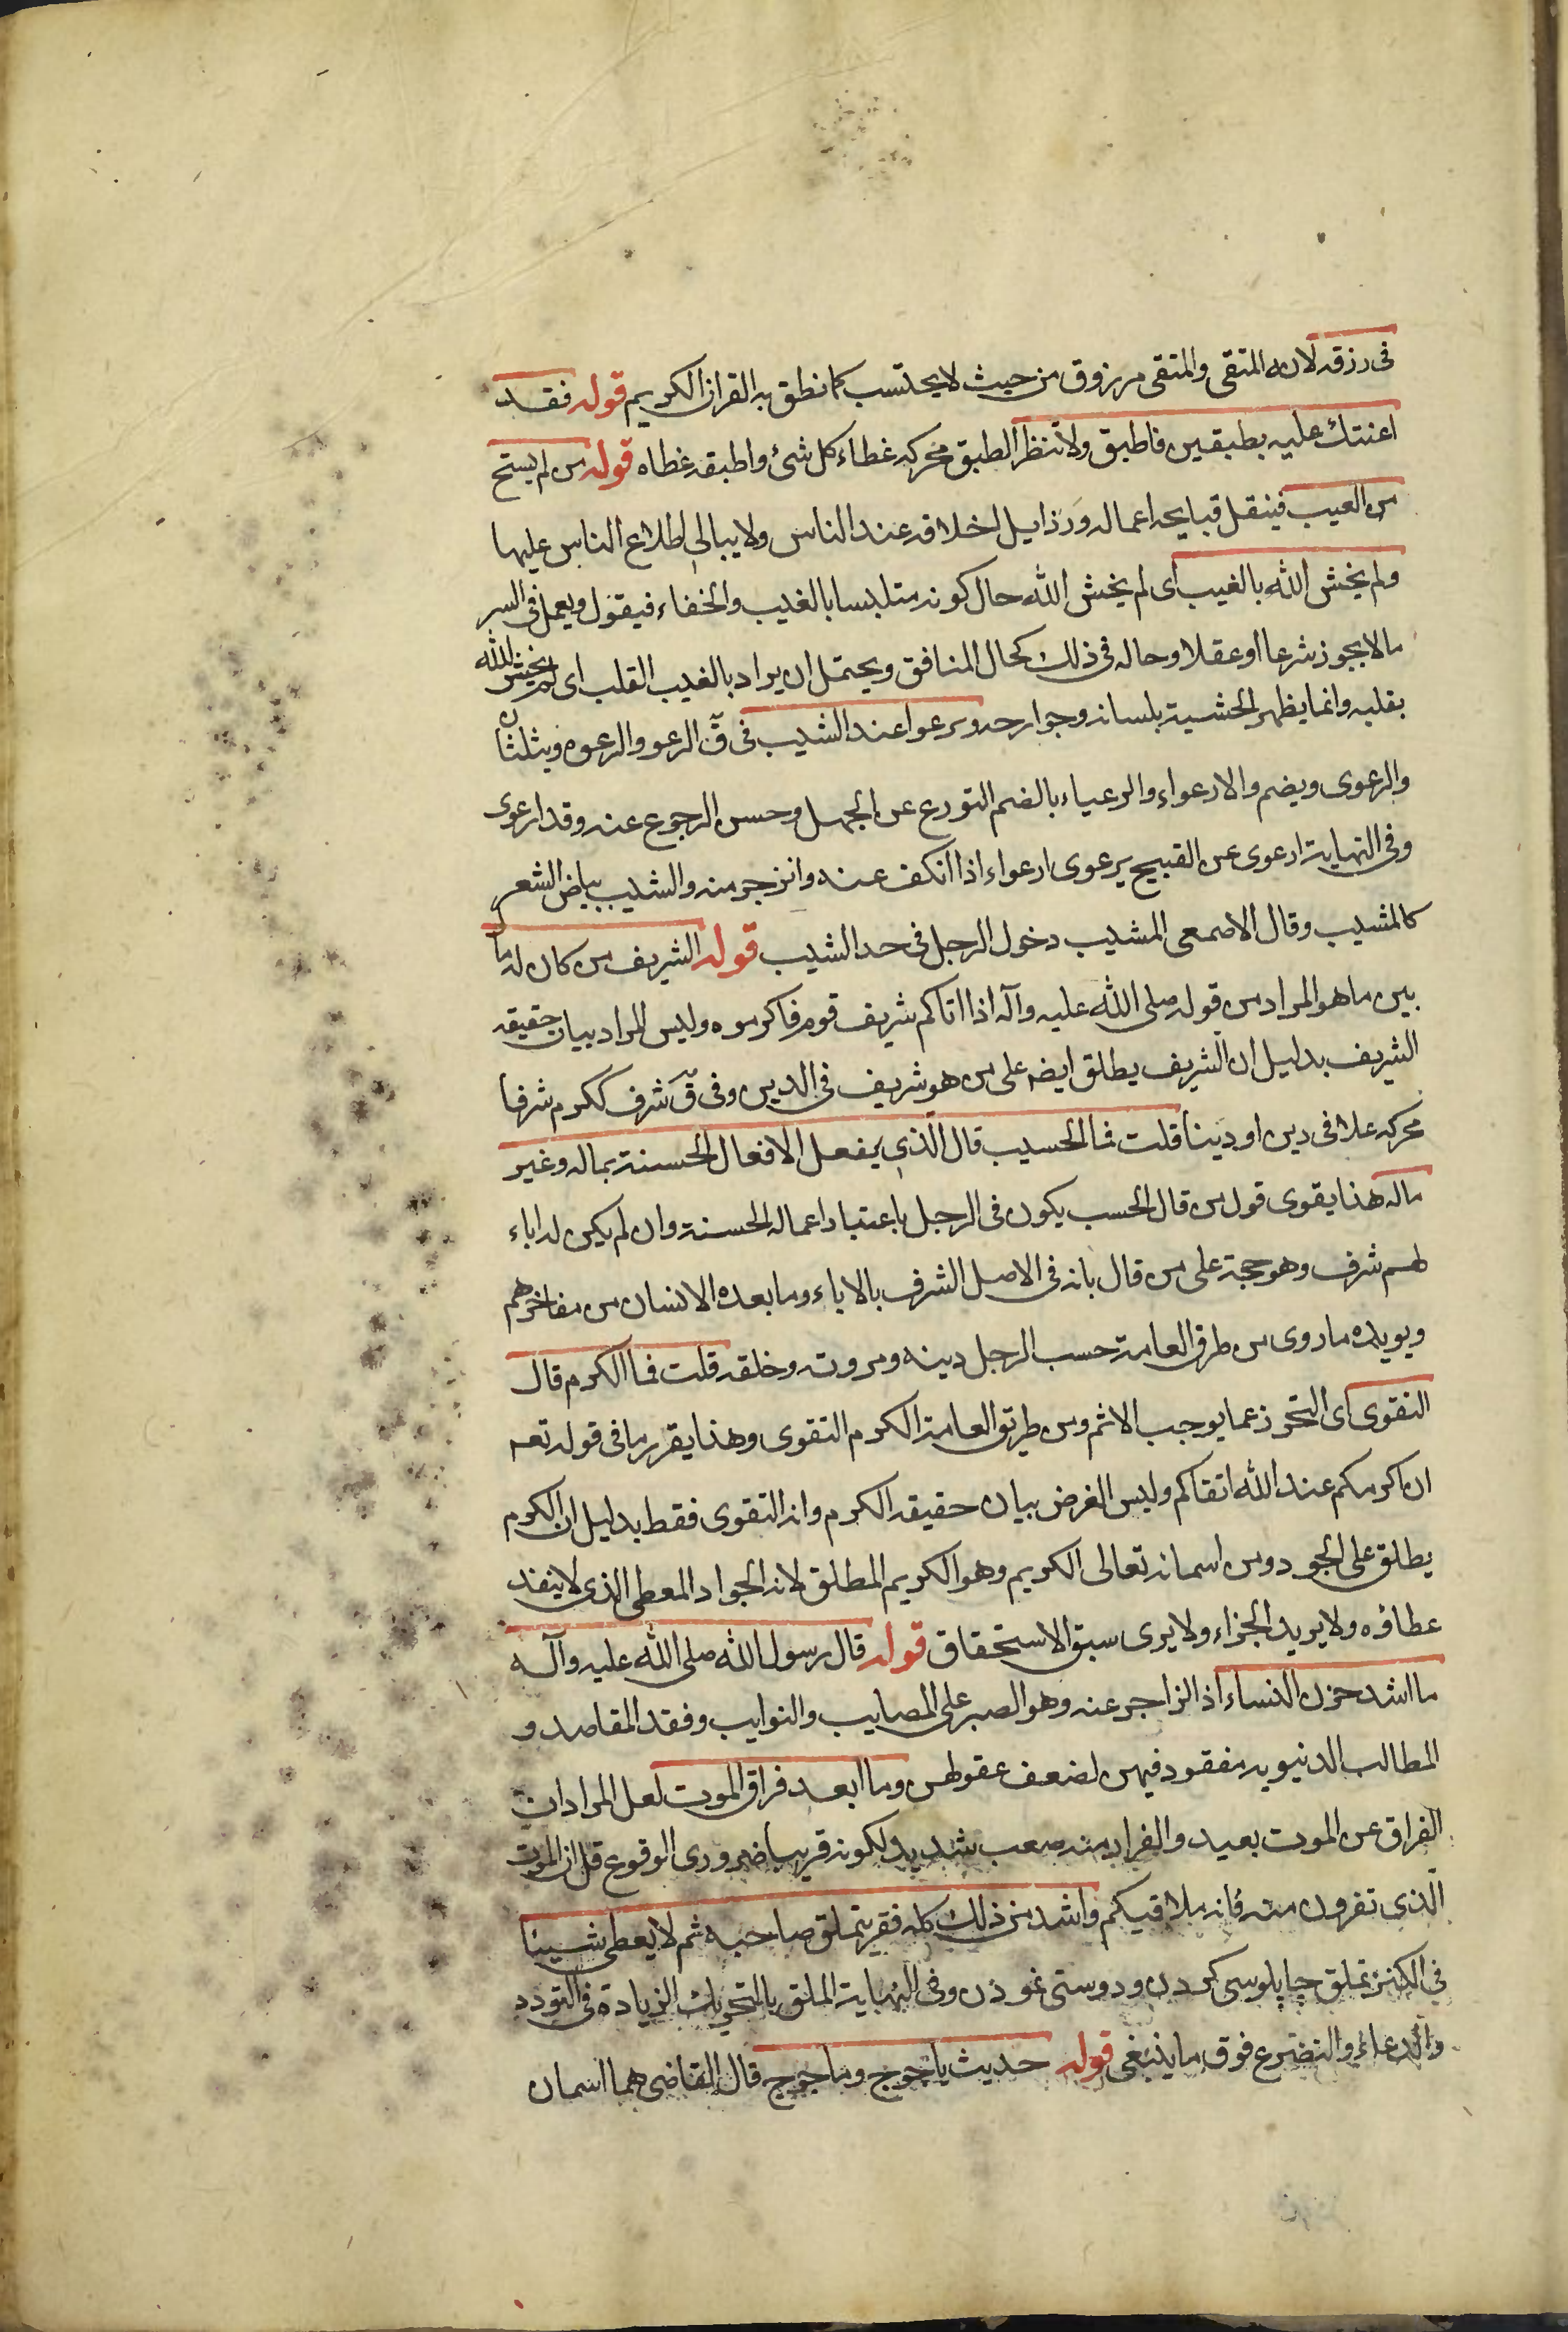 فى رزقه لانه المتقى والمتقى مرزوق من حيث لا يحتسب كما نطق به القران الكريم قوله فقد
اعنتك عليه بطبقين فاطبق ولا تنظر الطبق محركه غطاء كل شئ واطبقه غطاه قوله من لم يستح
من العيب فينقل قبايحه اعماله ورذايل اخلاقه عند الناس ولا يبالى اطلاع الناس عليها
ولم يخش الله بالغيب اى لم يخش الله حال كونه متلبسا بالغيب والخفاء فيقول ويعمل فى السر
ما لا يجوز شرعا او عقلا وحاله فى ذلك كحال المنافق ويحتمل ان يراد بالغيب القلب اى لم يخش الله
بقلبه وانما يظهر الخشية بلسانه وجوارحه ويرعوا عند الشيب فى ق الرعو والرعوه ويثلثان
والرعوى ويضم والارعواء والرعياء بالضم التورع عن الجهل وحسن الرجوع عنه وقد ارعوى
وفى النهاية ارعوى عن القبيح يرعوى ارعواء اذا انكف عنه وانزجر منه والشيب بياض الشعر
كالمشيب وقال الاصمعى المشيب دخول الرجل فى حد الشيب قوله الشريف من كان له ما
بين ما هو المراد من قوله صلى الله عليه وآله اذا اتاكم شريف قوم فاكرموه وليس المراد بيان حقيقه
الشريف بدليل ان الشريف يطلق ايضه على من هو شريف فى الدين وفى ق شرف ككرم شرفا
محركه علا فى دين او دينا قلت فما الحسيب قال الذى يفعل الافعال الحسنة بماله وغير
ماله هذا يقوى قول من قال الحسب يكون فى الرجل باعتبار اعماله الحسنة وان لم يكن له اباء
لهم شرف وهو حجة على من قال بانه فى الاصل الشرف بالاباء وما بعده الانسان من مفاخرهم
ويويده ما روى من طرق العامة حسب الرجل دينه ومروته وخلقه قلت فما الكرم قال
التقوى اى التحرز عما يوجب الاثم ومن طريق العامة الكرم التقوى وهذا يقرر ما فى قوله تعه
ان اكرمكم عند الله اتقاكم وليس الغرض بيان حقيقه الكرم وانه التقوى فقط بدليل ان الكرم
يطلق على الجود ومن اسمائه تعالى الكريم وهو الكريم المطلق لانه الجواد المعطى الذى لا ينفد
عطاؤه ولا يريد الجزاء ولا يرى سبق الاستحقاق قوله قال رسول الله صلى الله عليه وآله
ما اشد حزن النساء اذ الزاجر عنه وهو الصبر على المصايب والنوايب وفقد المقاصد و
المطالب الدنيويه مفقود فيهن لضعف عقولهن وما ابعد فراق الموت لعل المراد ان
الفراق عن الموت بعيد والفرار منه صعب شديد لكونه قريبا ضرورى الوقوع قل ان الموت
الذى تفرون منه فانه ملاقيكم واشد من ذلك كله فقر يتملق صاحبه ثم لا يعطى شيئا
فى الكنز تملق چاپلوسى كردن ودوستى نمودن وفى النهاية الملق بالتحريك الزيادة فى التودد
والدعاء والتضرع فوق ما ينبغى قوله حديث ياجوج وماجوج قال القاضى هما اسمان